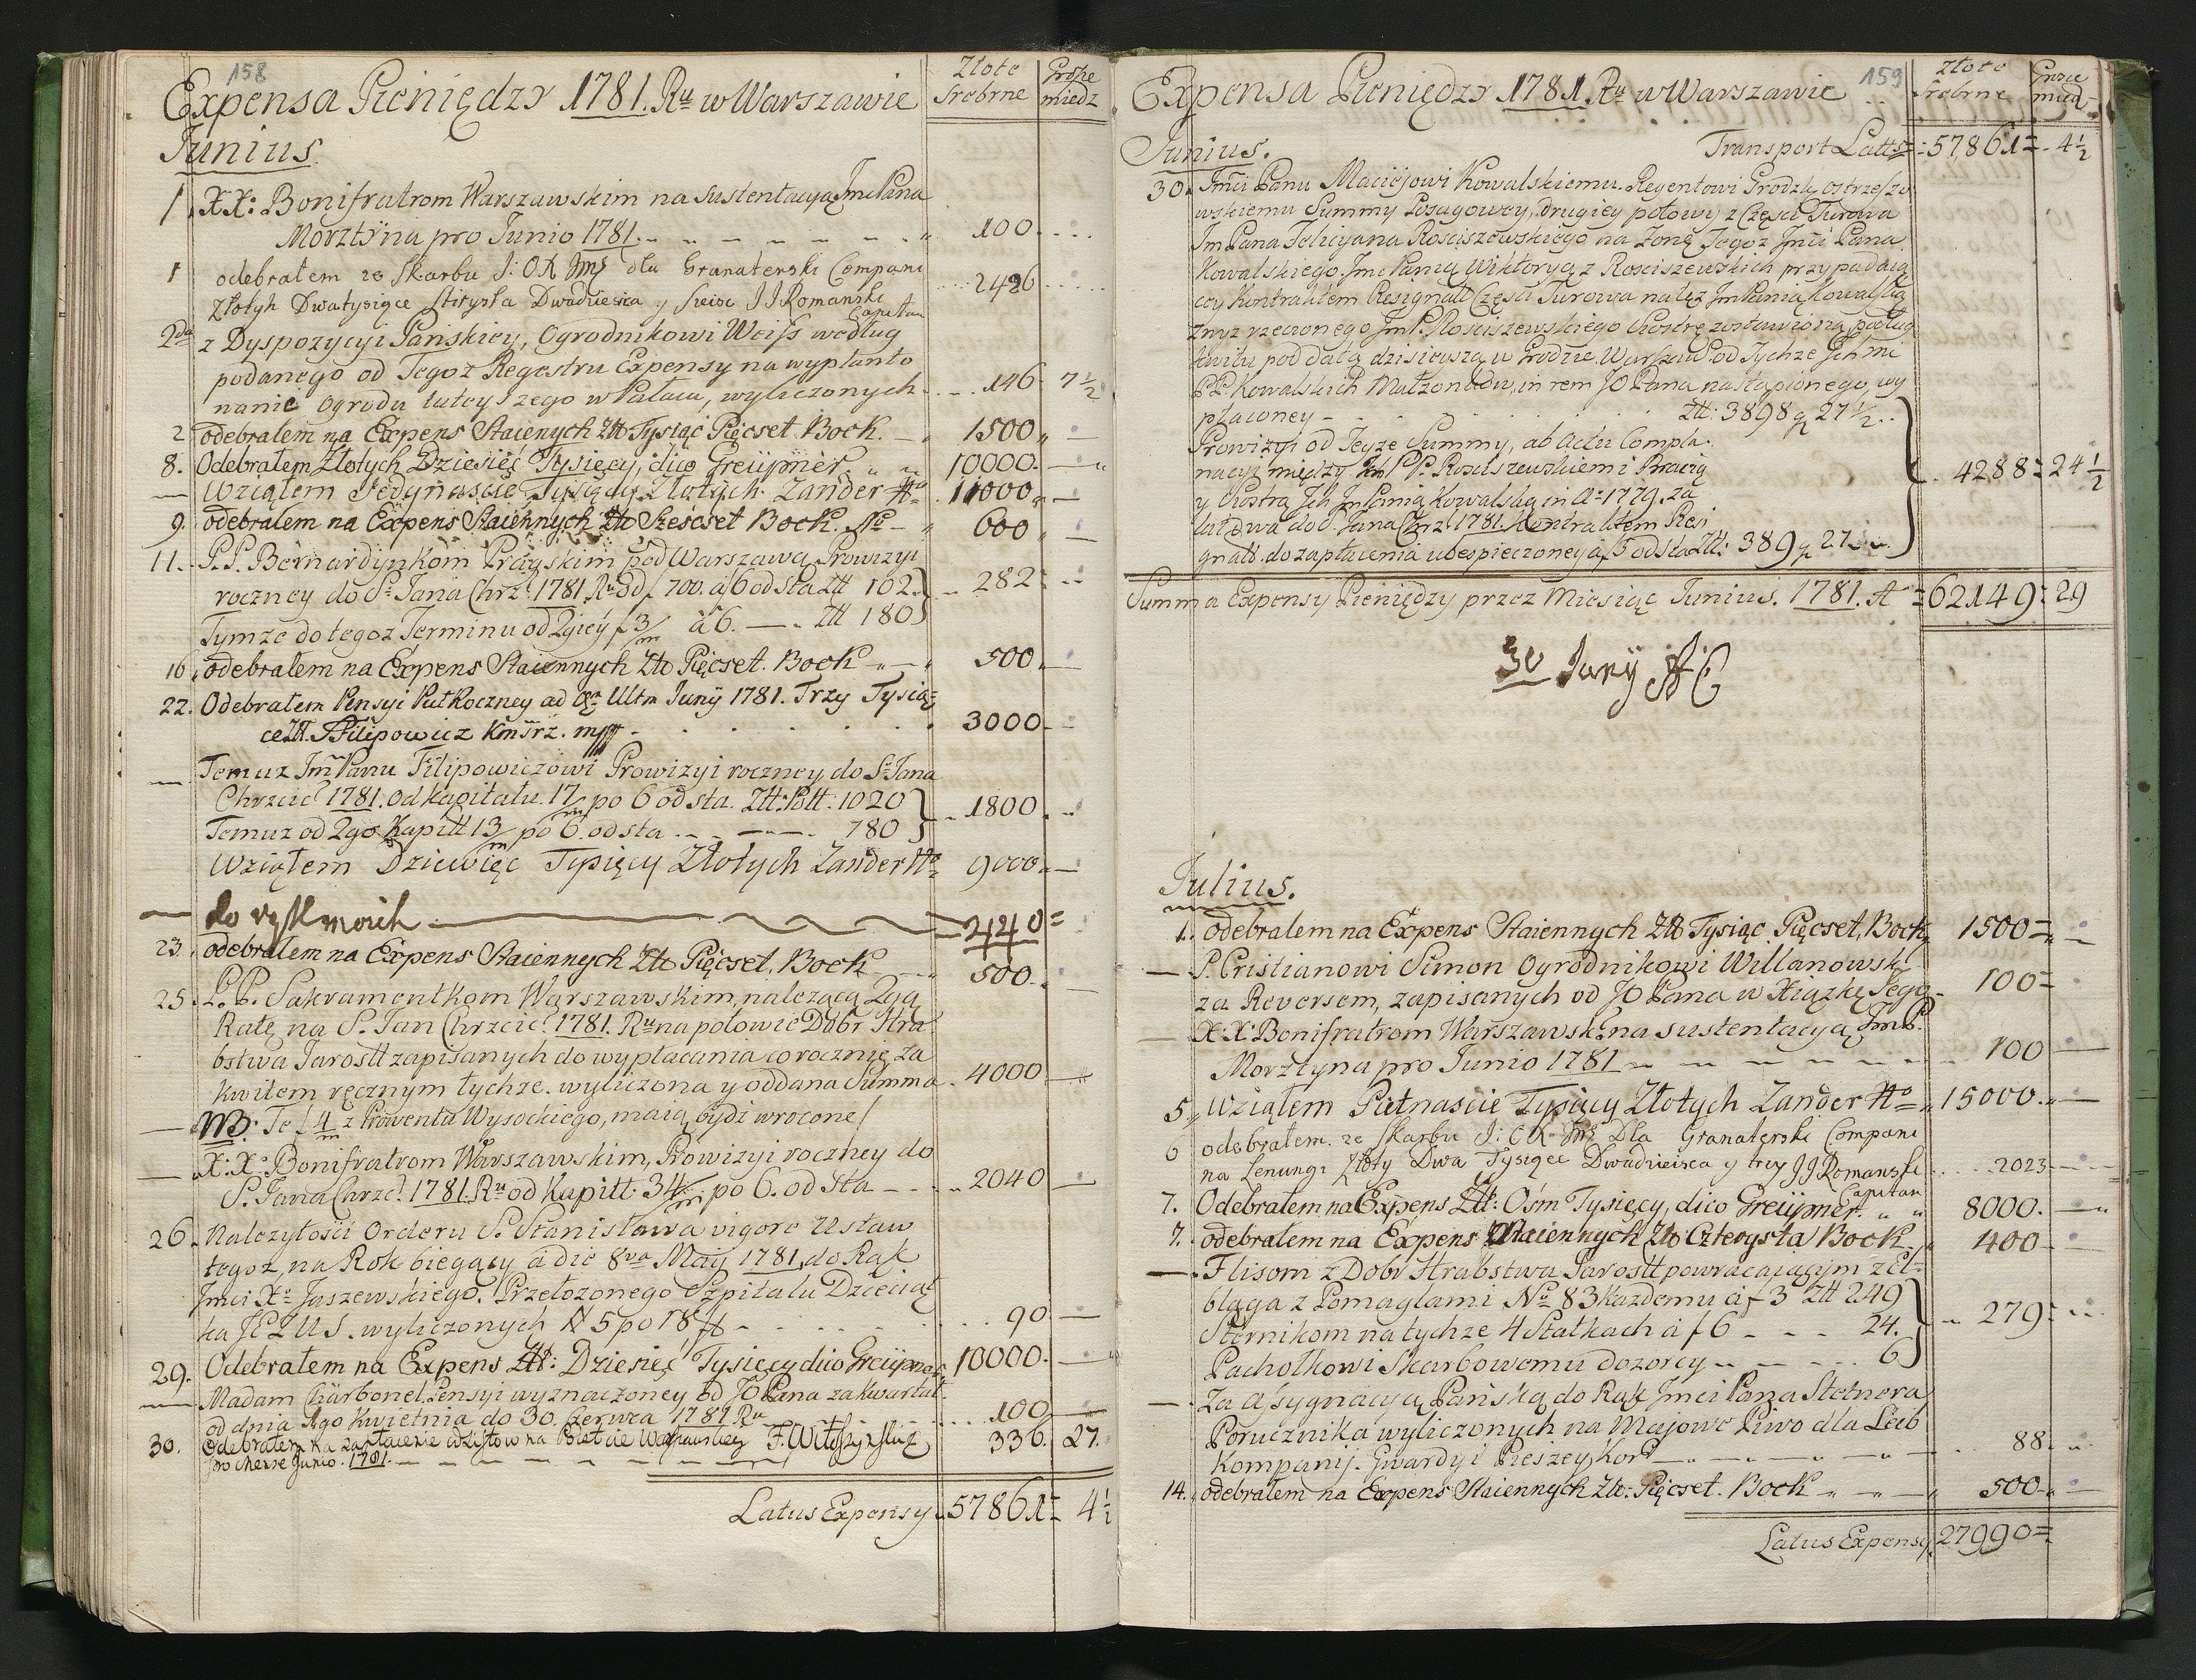 158
Expensa Pieniędzy 1781. Ru w Warszawie
Złote Srebrne
Grosze miedz
Junius.
1. XX: Bonifratrom Warszawskim na sustentacyą Jmć Pana
Morztyna pro Junio 1781. 100.
1 odebrałem ze Skarbu J: O X Jmś dla Granaterski Compani
Złotyh Dwatysiące Dwadziescia y JJ Romanski 2426
Capitan
2da z Dyspozycyi Pańskiey, Ogrodnikowi Weiss według
podanego od Tegoz Regestru Expensy na wyplanto
nanie Ogrodu tuteyszego w Pałacu, wyliczonych 146 7½
2 odebrałem na Expens Staienych Złł Tysiąc Pięcset Bock. 1500
8. Odebrałem Złotych Dziesięć Tysięcy, dico Greüpner 10000.
— Wziąłem Jedynascie Tysięcy Złotych. Zander 11000
9. odebrałem na Expens Staiennych Złł Szescset Bock. 600
11. P.P. Bernardynkom Prayskim pod Warszawą Prowizyi
roczney do S: Jana Chrz: 1781 Ru od f 700. á 6 od sta Złł 102. 282
Tymze do tegoz Terminu od 2giey f 3/m á 6. — Złł 180
16. odebrałem na Expens Staiennych Złł Pięcset. Bock 500
22. Odebrałem Pensyi PułRoczney ad Ultm Junÿ 1781. Trzy Tysią=
ce Złł. Filipowicz Kmsrz. mpp 3000
— Temuz Jm̃ Panu Filipowiczowi Prowizyi roczney do S: Jana
Chrzcic: 1781. od Kapitału. 17/m po 6 od sta. Złł: Poll: 1020 1800
Temuz od 2go Kapitł 13/m po 6. od sta 780
Wziąłem Dziewięć Tysięcy Złotych Zander 9000
— do moich 440=
23. odebrałem na Expens Staiennych Złł Pięcset, Bock 500.
25. P.P. Sakramentkom Warszawskim, nalezącą 2gą
Ratę na S. Jan Chrzcic: 1781. Ru na połowie Dobr Hra
bstwa Jarosłł zapisanych do wypłacania corocznię za
kwitem ręcznym tychze. wyliczona y oddana Summa 4000
— NB: Te f 4/m z Prowentu Wysockiego, maią bydź wrocone/
— X: X: Bonifratrom Warszawskim, Prowizyi roczney do
S. Jana Chrzc: 1781 Ru od Kapitł: 34/m po 6. od sta 2040
26. Nalezytości Orderu S. Stanisława vigore Ustaw
tegoz, na Rok biegący á die 8va Maÿ 1781, do Rąk
Jmci Xa Jaszewskiego. Przełozonego Szpitalu Dzieciąt
ka JEZUS. wyliczonych # 5 po 18 90
29. Odebrałem na Expens Złł: Dziesięć Tysięcy dico Greüpner 10000.
— Madam Charbonel. Pensyi wyznaczoney od JO Pana za kwartał.
od dnia 1go Kwietnia do 30. Czerwca 1781 Ru 100
30. Odebrałem na zapłacenie Listow na Poczcie Warszawskiey F. 336. 27.
pro Mense Junio. 1781.
Latus Expensy 57861 4½

159
Expensa Pieniędzy 1781 Ru w Warszawie
Złote Srebrne
Grosze miedz
Junius. Transport Latts 57861 4½
30. Jmći Panu Macieiowi Kowalskiemu. Regentowi Grodzk: Ostrzeszo
wskiemu Summy Posagowey, drugiey połowy z Częsci Turowa
Jm Pana Felicyana Rosciszewskiego na Zonę Jegoz Jmći Pana
Kowalskiego. Jmc Panią Wiktoryą z Rosciszewskich przypadaią
cey Kontraktem Resignatt Częsci Turowa na tęz Jm Panią Kowalską
zwyz rzeczonego Jm P. Rosciszewskiego Siostrę zostawioną, podług
kwitu pod datą dzisieyszą w Grodzie Warszaw: od Tychze Ich mć
PP. Kowalskich Małzonkow, in rem JO Pana nastąpionego, wy
płaconey Złł: 3898 g 27½
Prowizyi od Teyze Summy, ab Actu Compla.
nacyi między PP. Rosciszewskiemi Bracią
y Siostrą Ich Jm Panią Kowalską in Ao 1779. za
lat dwa do S. Jana Chrz. 1781. Kontraktem Resi
gnatt. do zapłacenia ubespieczoney á f 5 od sta Złł: 389 g 27. 4288 24½
Summa Expensy Pieniędzy przez Miesiąc Junius. 1781. A 62149 29
30 Junÿ
Julius.
1. odebrałem na Expens Staiennych Złł Tysiąc Pięcset, Bock 1500
— P. Cristianowi Simon Ogrodnikowi Willanowsk:
za Reversem, zapisanych od JO Pana w Xiązkę Jego 100
— X: X: Bonifratrom Warszawsk: na sustentacyą Jm P.
Morztyna pro Junio 1781 100
5. Wziąłem Piętnascie Tysięcy Złotych Zander 15000.
6 odebrałem. ze Skarbu J: O X Jmś Dla Granaterski Compani
na Lenungi Złoty Dwa Tysięce Dwadziescia y trzy JJ Romanski 2023
Capitan
7. Odebrałem na Expens Złł: Ośm Tysięcy, dico Greüpner. 8000.
7. odebrałem na Expens Staiennych Złł Czterysta Bock 400
— Flisom z Dobr Hrabstwa Jarosłł powracaiącym z El=
bląga z Pomagłami No 83 kazdemu á f 3 Złł 249
Sternikom na tychze 4 Statkach á f 6 24. 279
Pachołkowi Skarbowemu dozorcy 6
— Za Assygnacyą Pańską do Rąk Jmci Pana Stetnera
Porucznika wyliczonych na Majowe Piwo dla Leib
Kompanij. Gwardyi Pieszey, Kor: 88.
14. odebrałem na Expens Staiennych Złł: Pięcset. Bock 500
Latus Expensy 27990